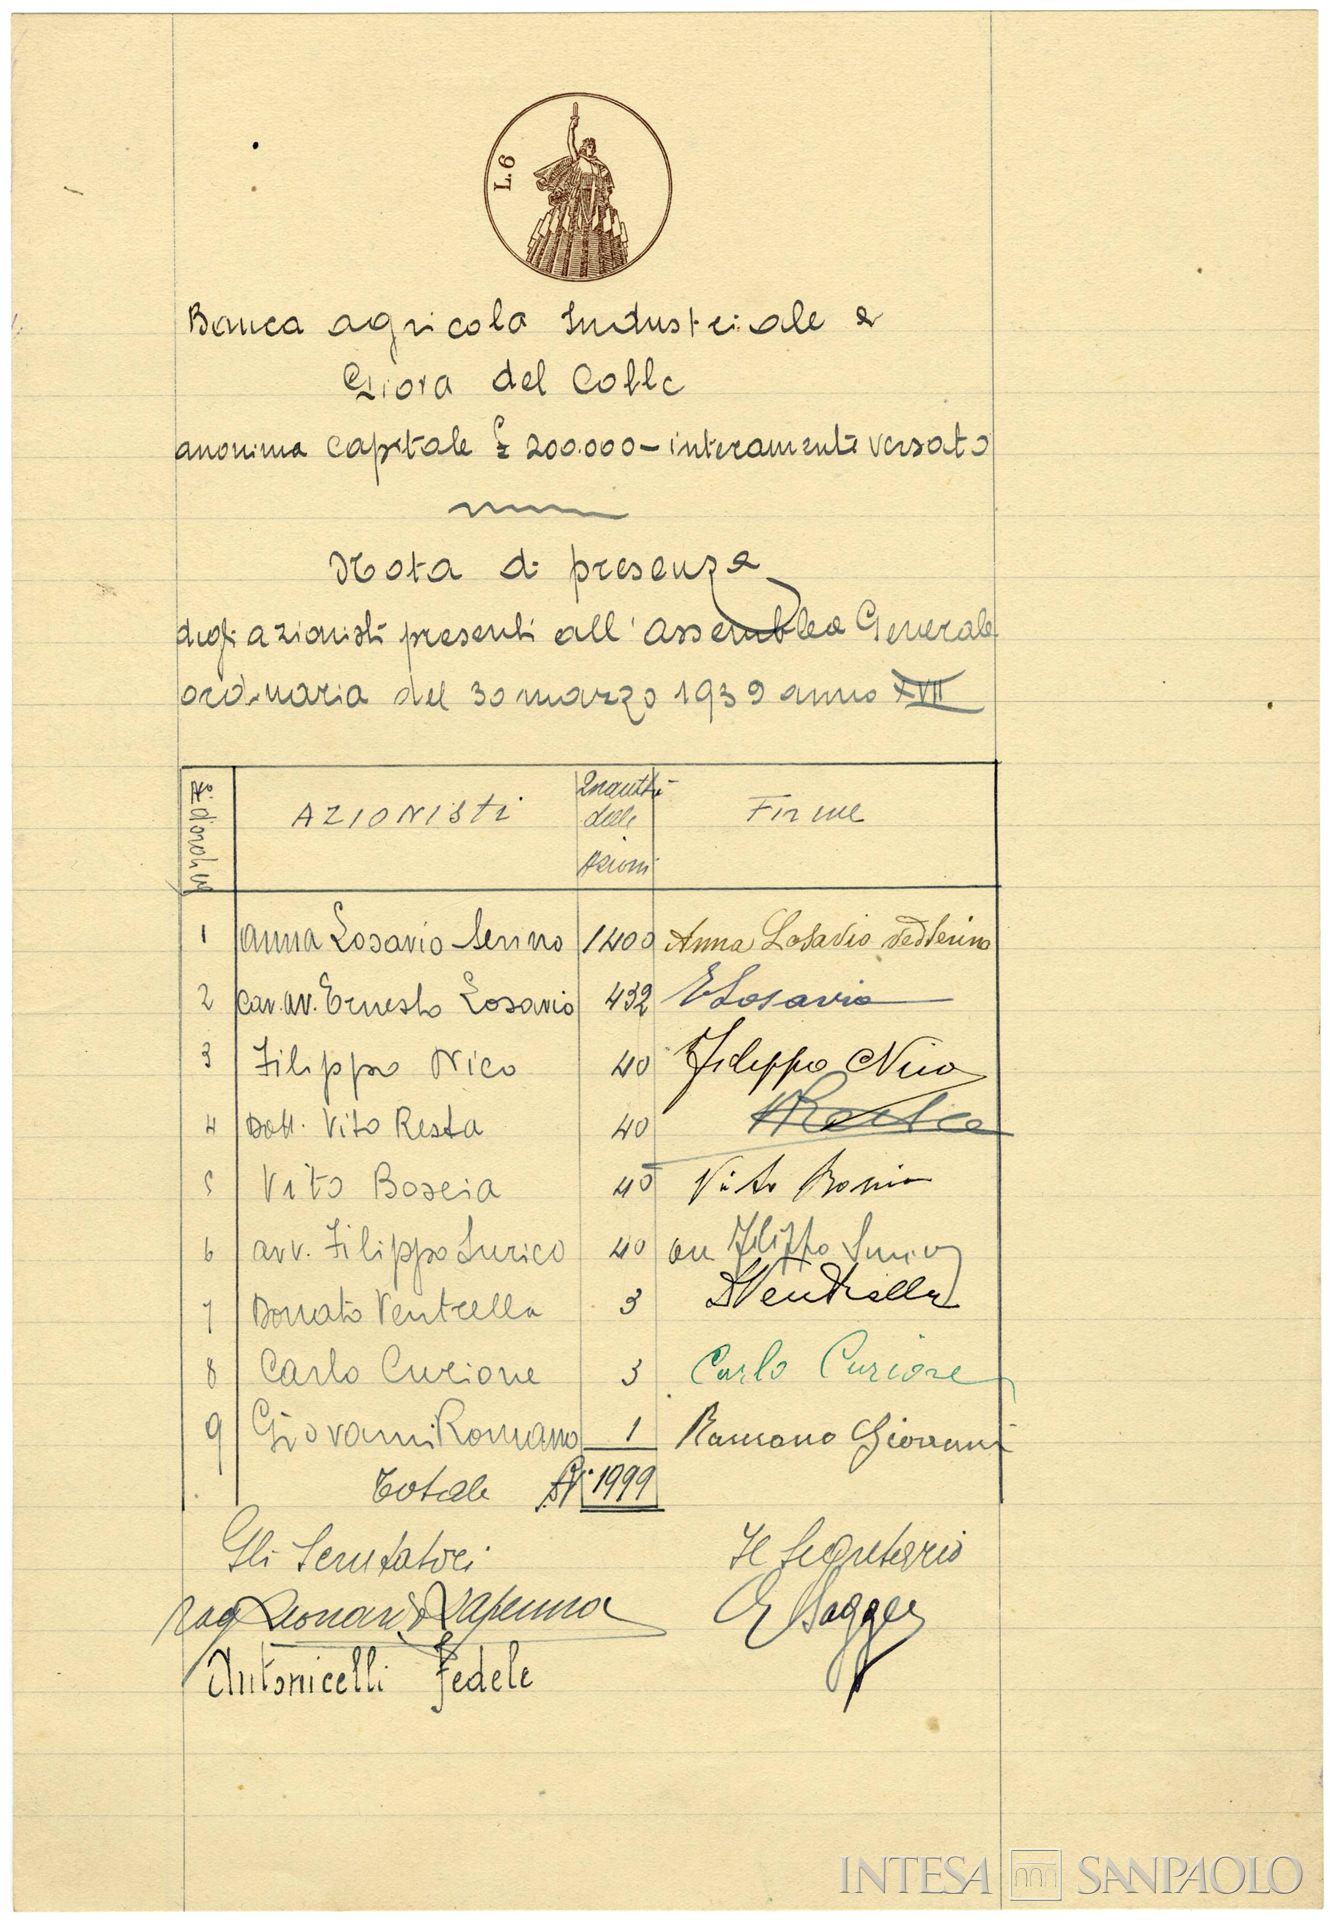 L. 6
Banca agricola Industriale e
Gioia del Colle
anonima capitale £ 200.000 – interamente versato
Nota di presenza
degli azionisti presenti all'assemblea Generale
ordinaria del 30 marzo 1939 anno XVII
N° d'ordine AZIONISTI Quantità delle Azioni Firme
1 Anna Losavio Serino 1400 Anna Losavio ved Serino
2 Cav. av. Ernesto Losavio 432 E Losavio
3 Filippo Nico 40 Filippo Nico
4 Dott. Vito Resta 40 V Resta
5 Vito Boscia 40 Vito Boscia
6 avv. Filippo Surico 40 avv Filippo Surico
7 Donato Ventrella 3 D Ventrella
8 Carlo Curione 3 Carlo Curione
9 Giovanni Romano 1 Romano Giovanni
Totale N. 1999
Gli Scrutatori Il Segretario
rag Leonardo
Antonicelli Fedele
INTESA SANPAOLO